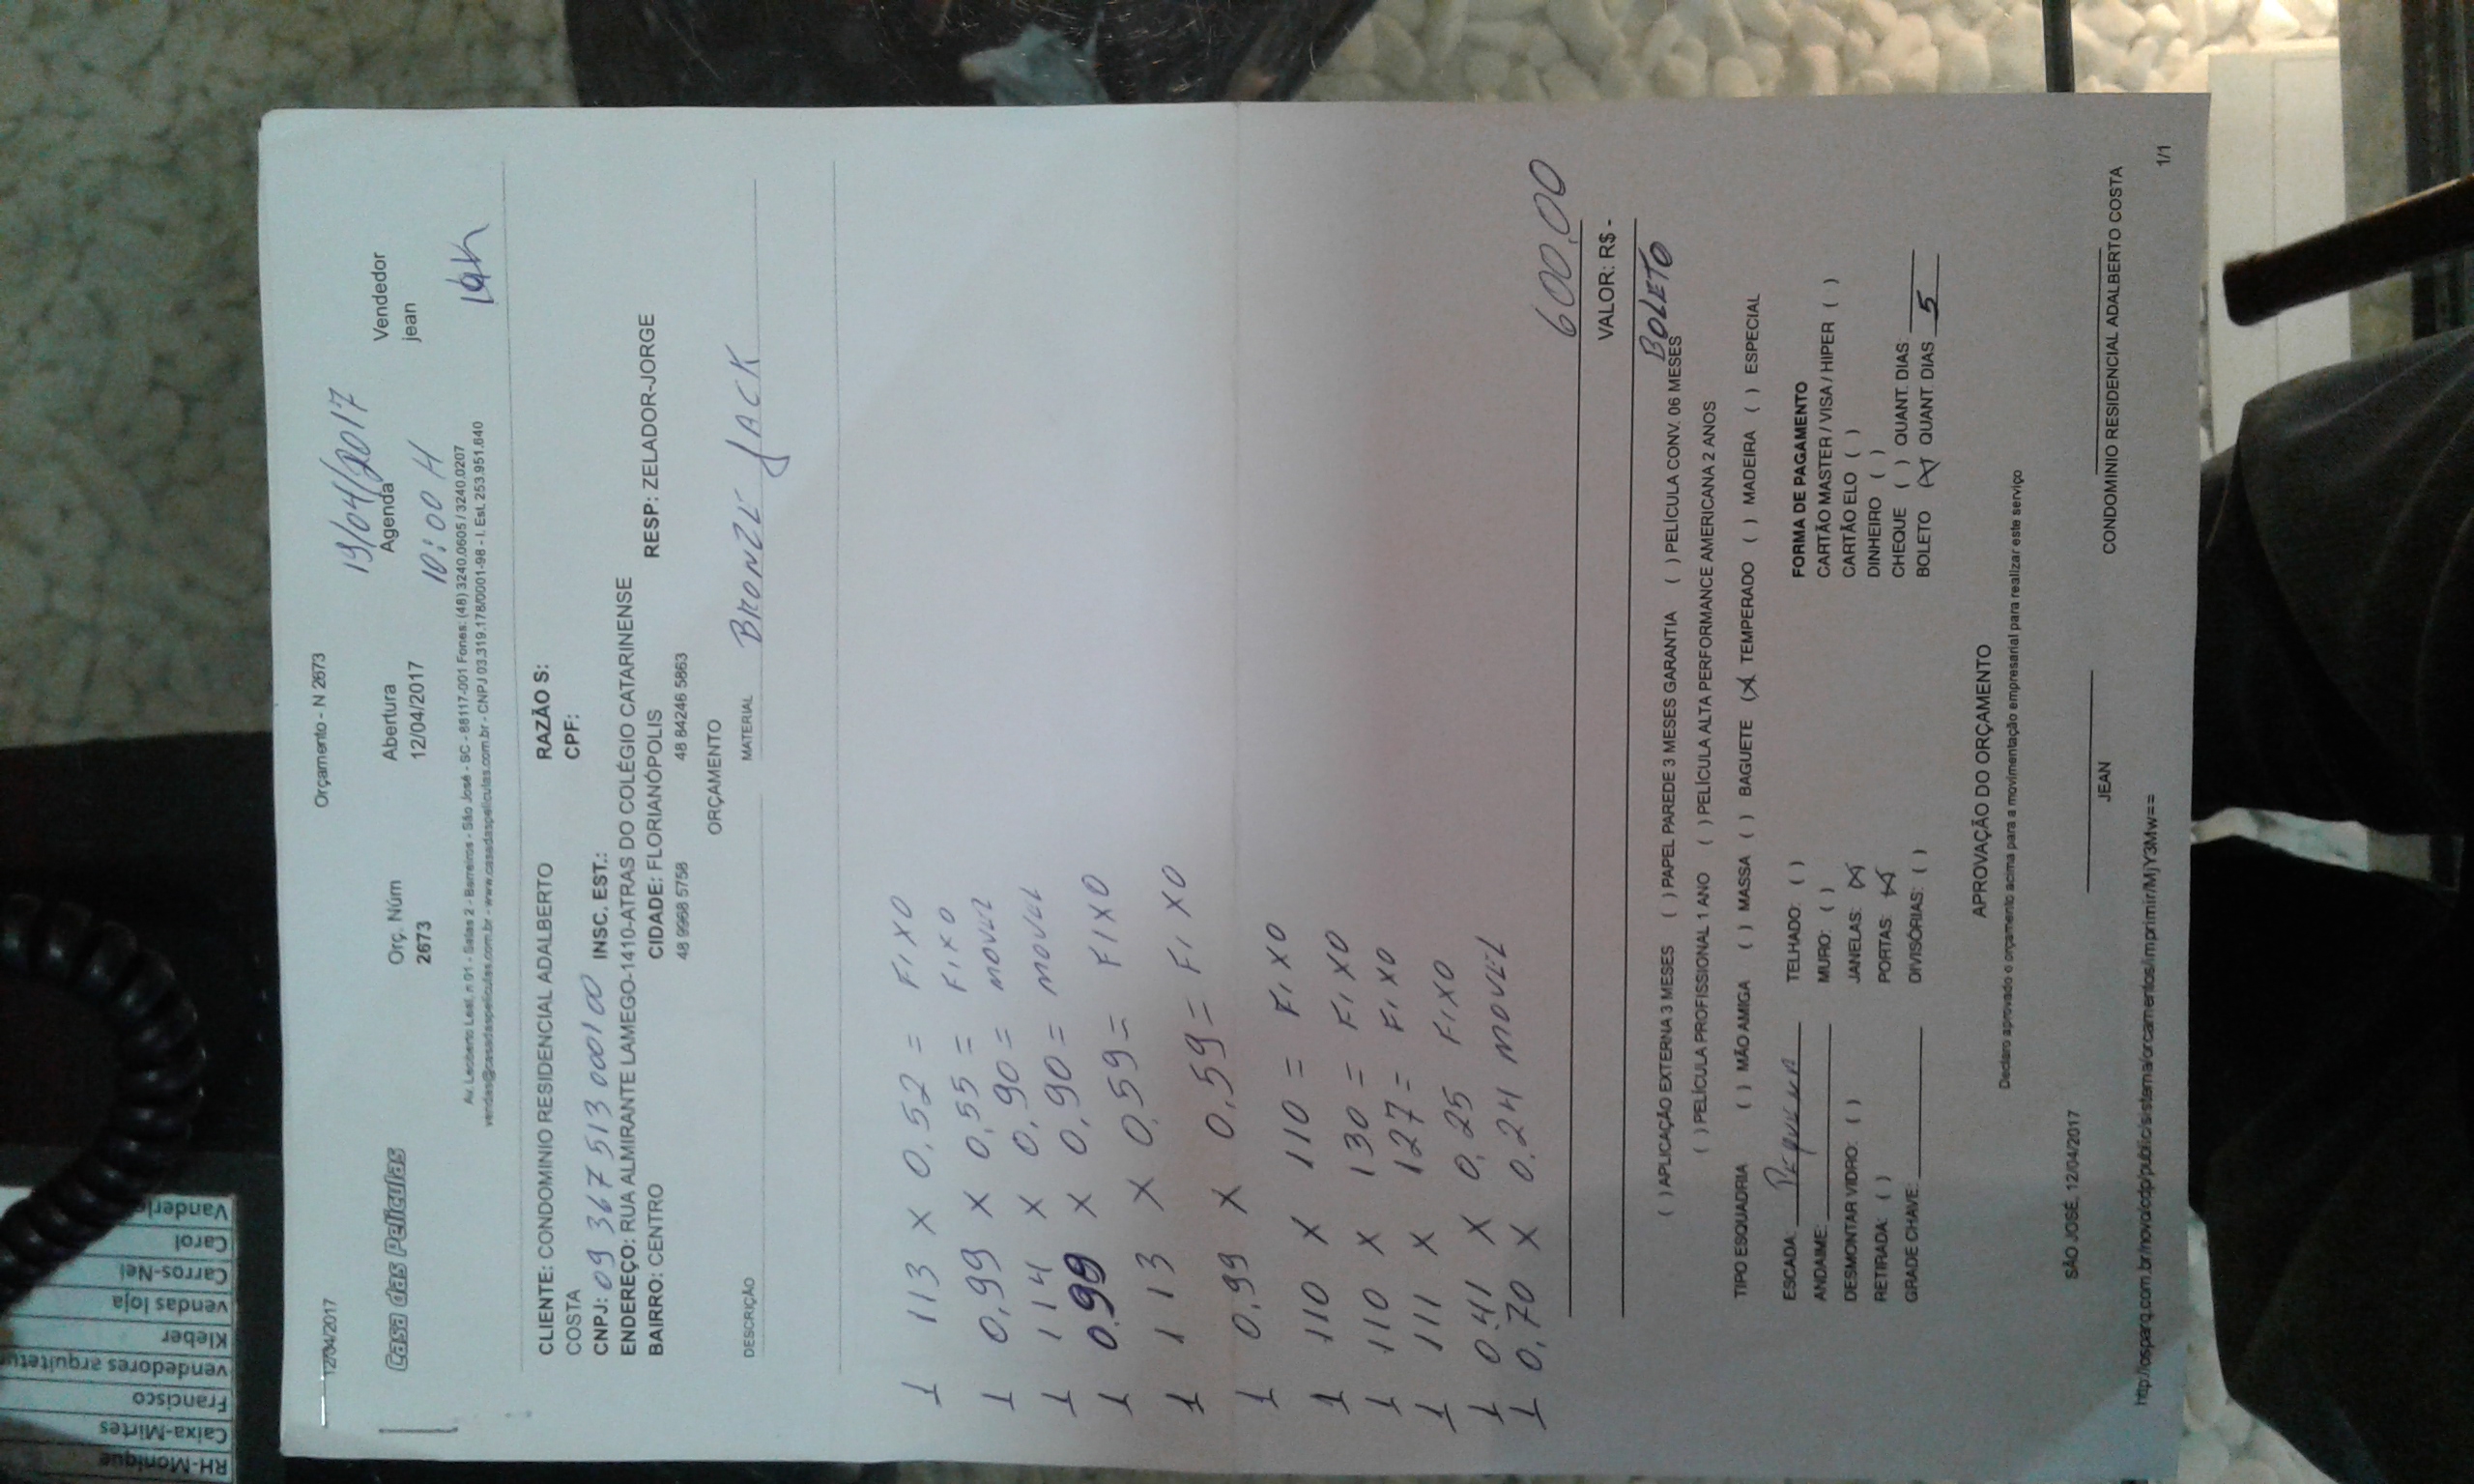 12/04/2017
Orçamento - N 2673
19/04/2017
Casa das Películas
Orç. Núm
2673
Abertura
12/04/2017
Agenda
10:00 H
Vendedor
jean
Av. Leoberto Leal, n 01 - Salas 2 - Barreiros - São José - SC - 88117-001 Fones: (48) 3240.0605 / 3240.0207
vendas@casadaspeliculas.com.br - www.casadaspeliculas.com.br - CNPJ 03.319.178/0001-98 - I. Est. 253.951.640
CLIENTE: CONDOMINIO RESIDENCIAL ADALBERTO
COSTA
RAZÃO S:
CPF:
CNPJ: 09 367 513 000100 INSC. EST.:
ENDEREÇO: RUA ALMIRANTE LAMEGO-1410-ATRAS DO COLÉGIO CATARINENSE
BAIRRO: CENTRO CIDADE: FLORIANÓPOLIS RESP: ZELADOR-JORGE
48 9968 5758 48 84246 5863
ORÇAMENTO
DESCRIÇÃO MATERIAL BRONZE JACK
1 113 X 0,52 = FIXO
1 0,99 X 0,55 = FIXO
1 114 X 0,90 = MOVEL
1 0,99 X 0,90 = MOVEL
1 113 X 0,59 = FIXO
1 0,99 X 0,59 = FIXO
1 110 X 110 = FIXO
1 110 X 130 = FIXO
1 111 X 127 = FIXO
1 0,41 X 0,25 FIXO
1 0,70 X 0,24 MOVEL
600,00
VALOR: R$ -
BOLETO
( ) APLICAÇÃO EXTERNA 3 MESES ( ) PAPEL PAREDE 3 MESES GARANTIA ( ) PELÍCULA CONV. 06 MESES
( ) PELÍCULA PROFISSIONAL 1 ANO ( ) PELÍCULA ALTA PERFORMANCE AMERICANA 2 ANOS
TIPO ESQUADRIA ( ) MÃO AMIGA ( ) MASSA ( ) BAGUETE (X) TEMPERADO ( ) MADEIRA ( ) ESPECIAL
ESCADA: PEQUENA
ANDAIME:
DESMONTAR VIDRO: ( )
RETIRADA: ( )
GRADE CHAVE:
TELHADO: ( )
MURO: ( )
JANELAS: (X)
PORTAS: (X)
DIVISÓRIAS: ( )
FORMA DE PAGAMENTO
CARTÃO MASTER / VISA / HIPER ( )
CARTÃO ELO ( )
DINHEIRO ( )
CHEQUE ( ) QUANT. DIAS:
BOLETO (X) QUANT. DIAS 5
APROVAÇÃO DO ORÇAMENTO
Declaro aprovado o orçamento acima para a movimentação empresarial para realizar este serviço
SÃO JOSÉ, 12/04/2017
JEAN
CONDOMINIO RESIDENCIAL ADALBERTO COSTA
http://osparq.com.br/novo/cdp/public/sistema/orcamentos/imprimir/MjY3Mw==
1/1
RH-Monique
Caixa-Mirtes
Francisco
vendedores arquitetur
Kleber
vendas loja
Carros-Nei
Carol
Vanderle